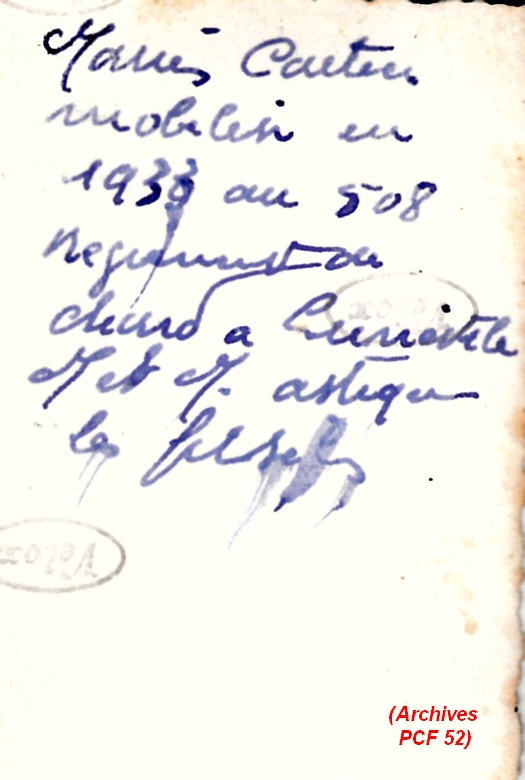 Marius Cartier
mobilisé en
au 508
Regiment de
chars a Luneville
M et M. astique
les fusils
Velox
Velox
(Archives
PCF 52)